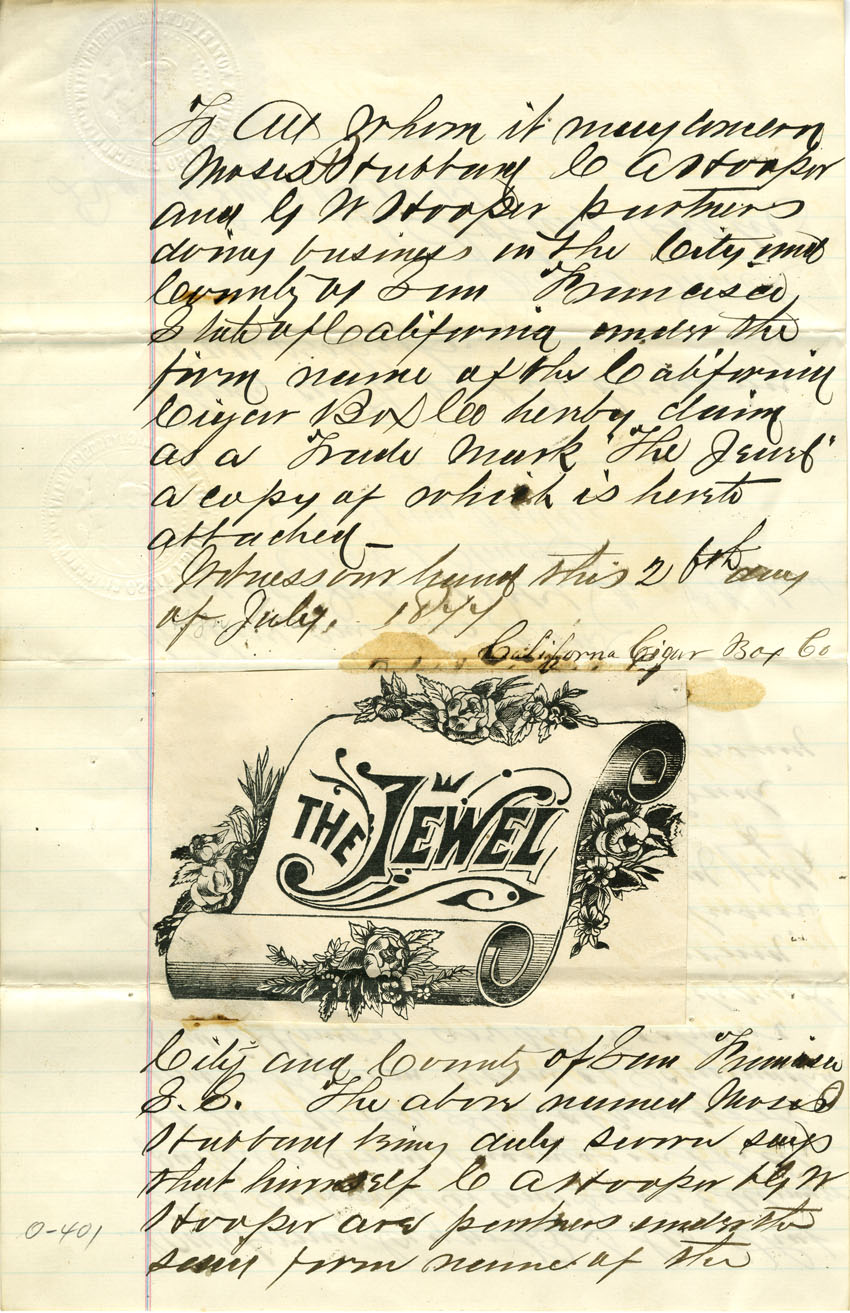 To All Whom it may concern
Moses Hubbard C A Hooper
and G W Hooper partners
doing business in the City and
County of San Francisco
State of California under the
firm name of the California
Cigar Box Co herby claim
as a Trade Mark "The Jewel"
a copy of which is hereto
attached
Witness our hand this 26th day
of July 1877
California Cigar Box Co
THE JEWEL
City and County of San Francisco
S.S. The above named Moses
Hubbard being duly sworn says
that himself C A Hooper & G W
Hooper are partners under the
said firm name of the
O-401